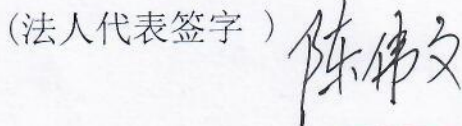 (法人代表签字 ) 陈伟文